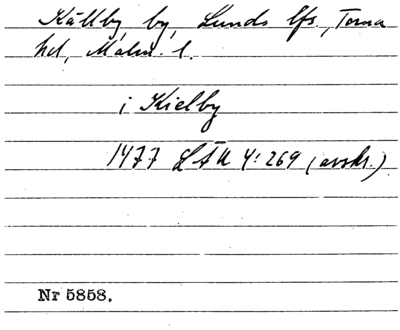 Källby by, Lunds lfs., Torna
hd, Malm. l.
i Kielby
1477 LÄU 4:269 (avskr.)
Nr 5858.